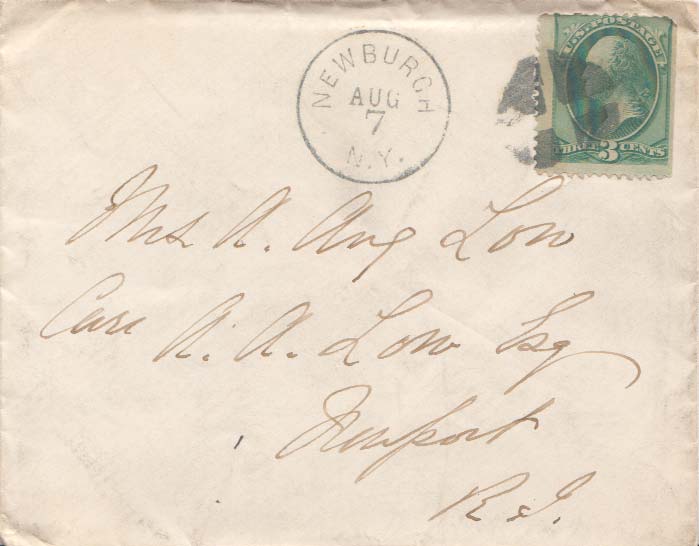 NEWBURGH
AUG
7
N.Y.
U.S. POSTAGE
THREE 3 CENTS
Mrs A. Aug Low
Care A. A. Low Esq
Newport
R. I.